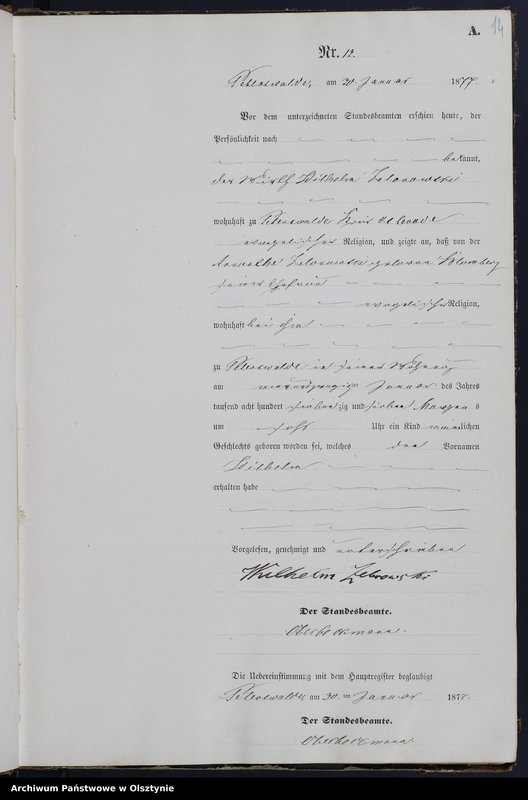 A. 14
Nr. 13.
Peterswalde, am 30. Januar 1877.
Vor dem unterzeichneten Standesbeamten erschien heute, der
Persönlichkeit nach
bekannt,
der Wirth Wilhelm
wohnhaft zu Peterswalde Kreis Osterode
evangelischer Religion, und zeigte an, daß von der
geborene
seiner Ehefrau
evangelischer Religion,
wohnhaft bei ihm
zu Peterswalde in seiner Wohnung
am neunundzwanzigsten Januar des Jahres
tausend acht hundert siebenzig und sieben Morgens
um sechs Uhr ein Kind männlichen
Geschlechts geboren worden sei, welches den Vornamen
Wilhelm
erhalten habe
Vorgelesen, genehmigt und unterschrieben
Wilhelm
Der Standesbeamte.
Oberbeckmann.
Die Uebereinstimmung mit dem Hauptregister beglaubigt
Peterswalde, am 30.ten Januar 1877.
Der Standesbeamte.
Oberbeckmann.
Archiwum Państwowe w Olsztynie